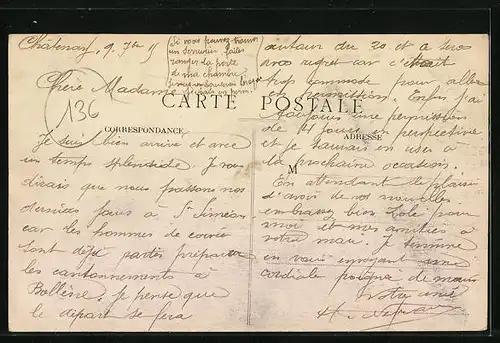 Châtenay, 9 7bre 15
(Si vous pouvez trouver
un serrurier faites
ranger la porte
de ma chambre,
Chère Madame
136
CARTE POSTALE
CORRESPONDANCE
ADRESSE
M
Je suis bien arrivé et avec
un temps splendide. Je vous
disais que nous passons nos
derniers jours à St Siméon
car les hommes de corvée
sont déjà partis préparer
les cantonnements à
Bollène. Je pense que
le départ se fera
autour du 20 et à mon
grand regret car c'était
trop commode pour aller
en permission. Enfin j'ai
toujours une permission
de 4 jours en perspective
et je saurai en user à
la prochaine occasion.
En attendant le plaisir
d'avoir de vos nouvelles
embrassez bien Lole pour
moi et mes amitiés à
votre mari. Je termine
en vous envoyant une
cordiale poignée de main
Votre ami
H.